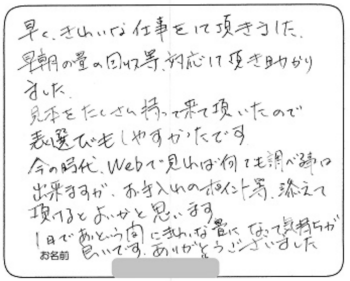 早く、きれいな仕事をして頂きました。
早朝の畳の回収等、対応して頂き助かり
ました。
見本をたくさん持って来て頂いたので
表選びもしやすかったです
今の時代、Webで見れば何でも調べ事は
出来ますが、お手入れのポイント等、添えて
頂けるとよいかと思います
1日であっという間にきれいな畳になって気持ちが
良いです。ありがとうございました
お名前